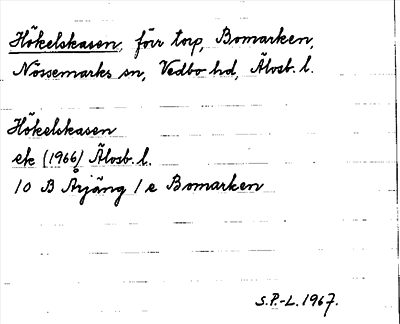 Hökelskasen, förr torp, Bomarken,
Nössemarks sn, Vedbo hd, Älvsb. l.
Hökelskasen
ek (1966) Älvsb. l.
10 B Årjäng 1 e Bomarken
S.P.-L. 1967.